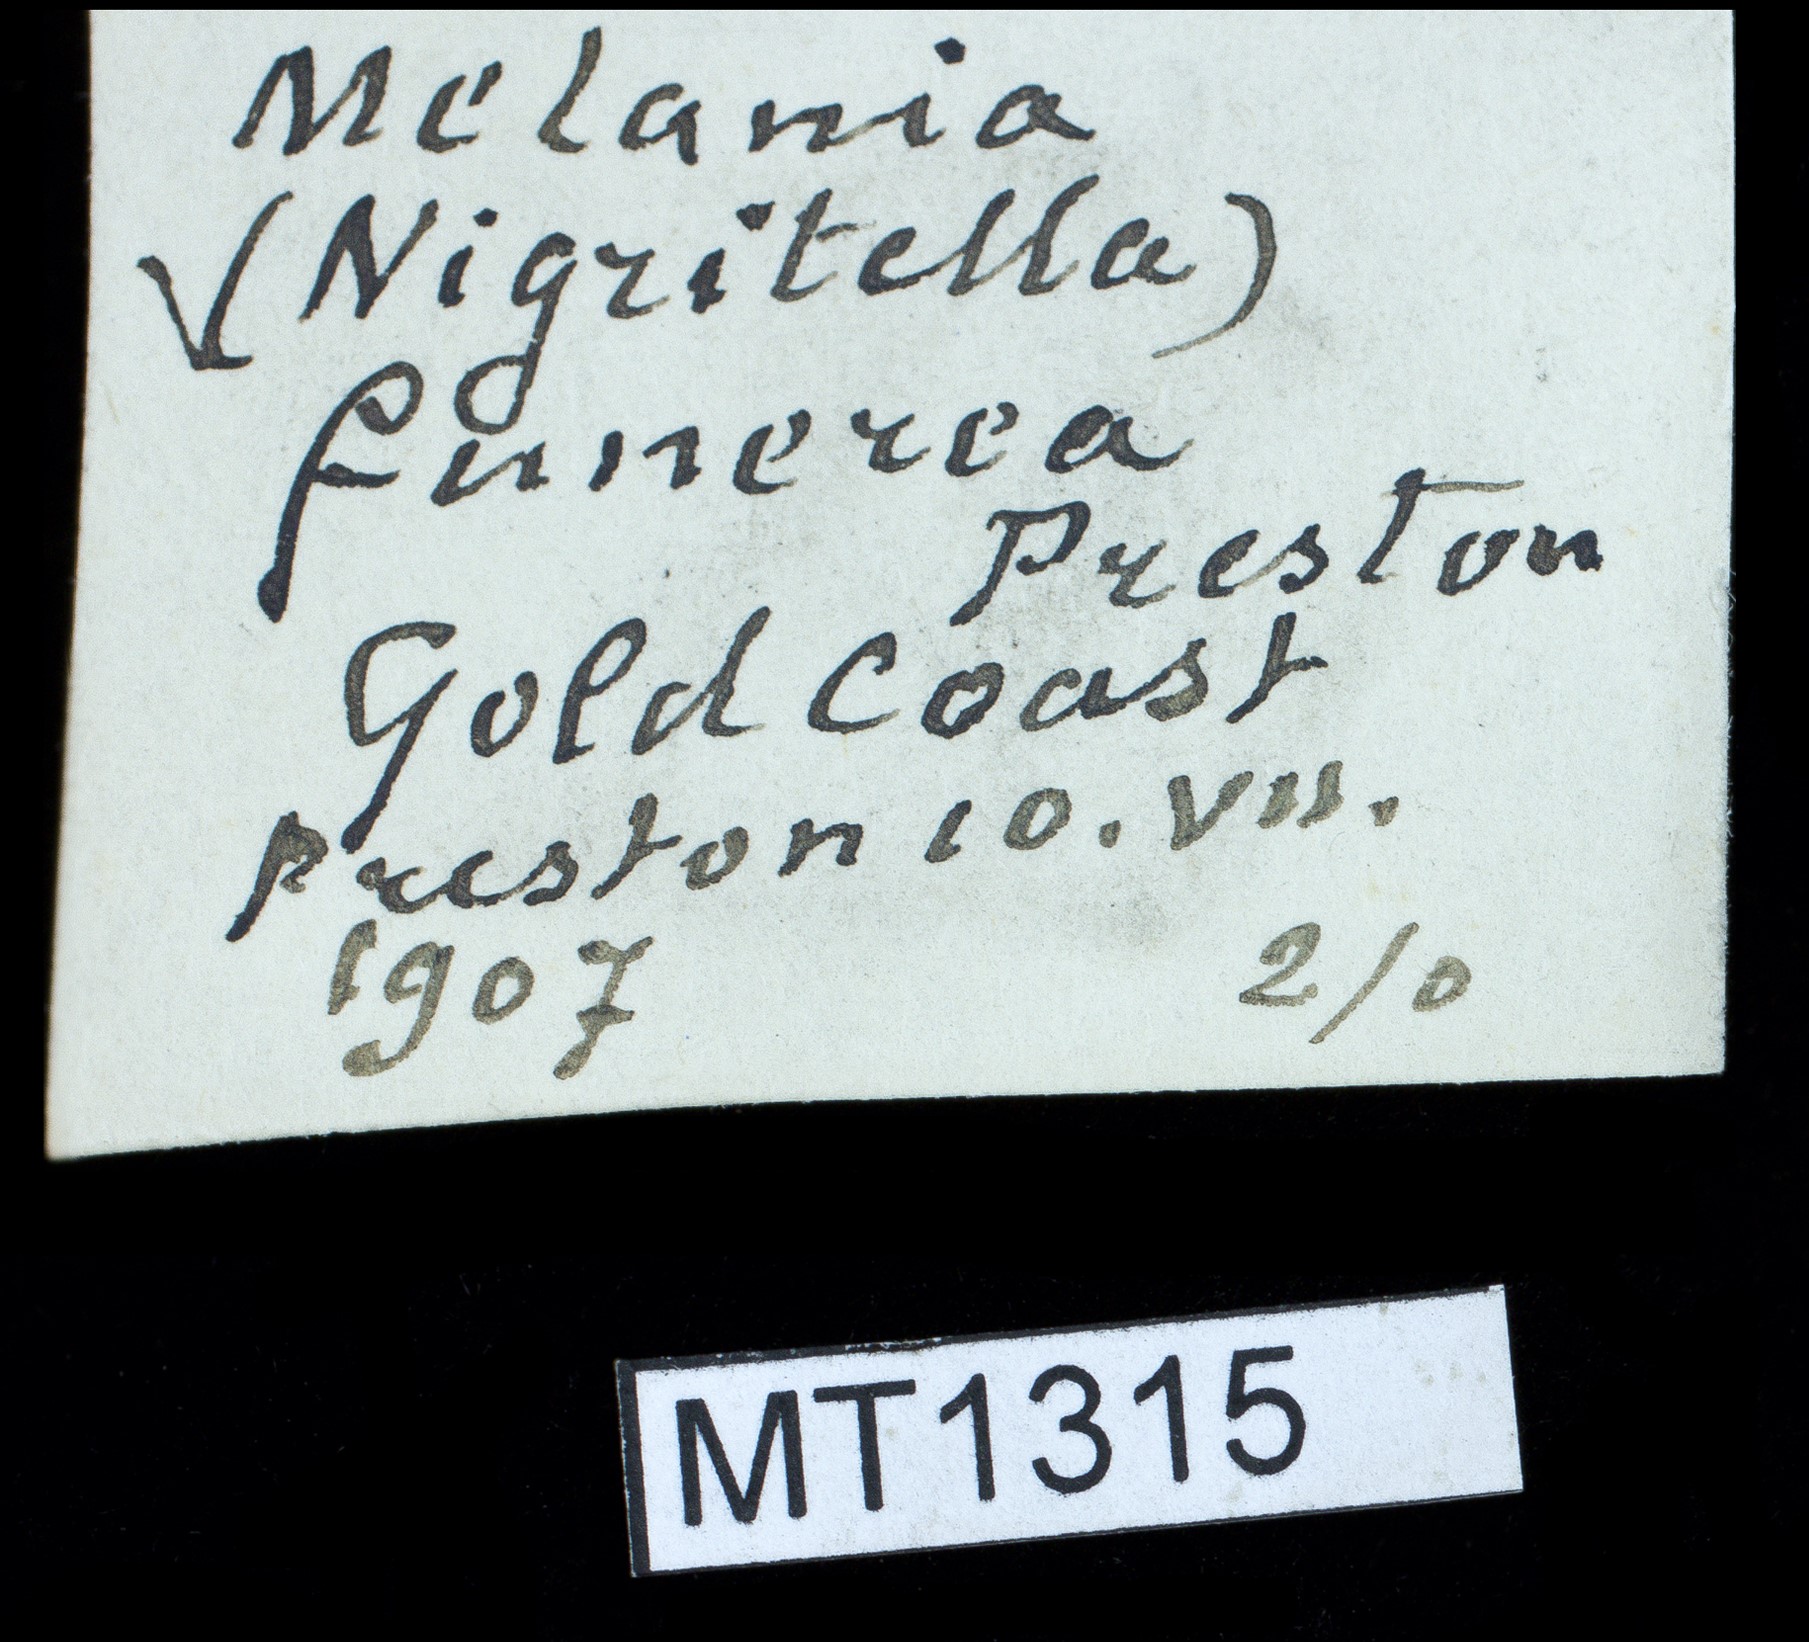 Melania
√(Nigritella)
funerea
Preston
Gold Coast
Preston 10. VII.
1907 2/0
MT1315